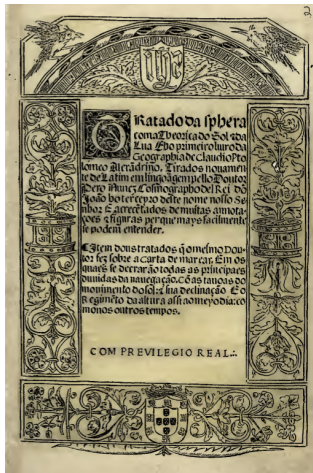 2
IHS
TRatado da sphera
com a Theorica do Sol z da
Lua. E ho primeiro liuro da
Geographia de Claudio Pto
lomeo Alexãdrino. Tirados nouamen
te de Latim em lingoagem pello Doutor
Pero Nunez Cosmographo del Rei dõ
João ho terceyro deste nome nosso Se
nhor. E acrecẽtados de muitas annota-
ções z figuras per que mays facilmente
se podem entender.
¶ Item dous tratados q̃ o mesmo Dou-
tor fez sobre a carta de marear. Em os
quaes se decrarão todas as principaes
duuidas da nauegação. Cõ as tauoas do
mouimento do sol: z sua declinação. E o
Regimẽto da altura assi ao meyo dia: co
mo nos outros tempos.
COM PREVILEGIO REAL.:.